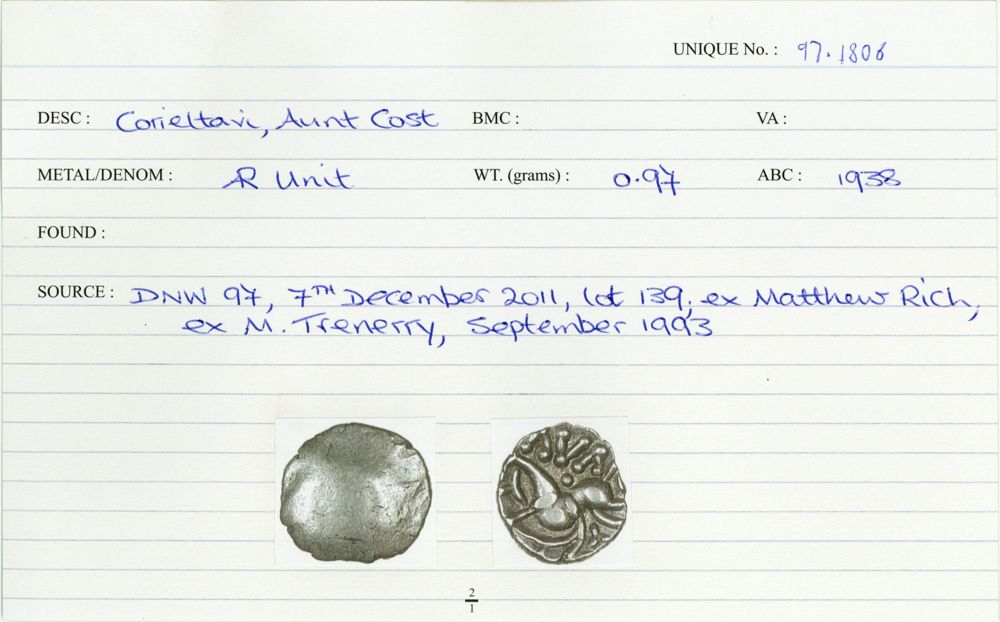 UNIQUE No. : 97.1806
DESC : Corieltavi, Aunt Cost BMC : VA :
METAL/DENOM : AR Unit WT. (grams) : 0.97 ABC : 1938
FOUND :
SOURCE : DNW 97, 7TH December 2011, lot 139, ex Matthew Rich,
ex M. Trenerry, September 1993
2
1